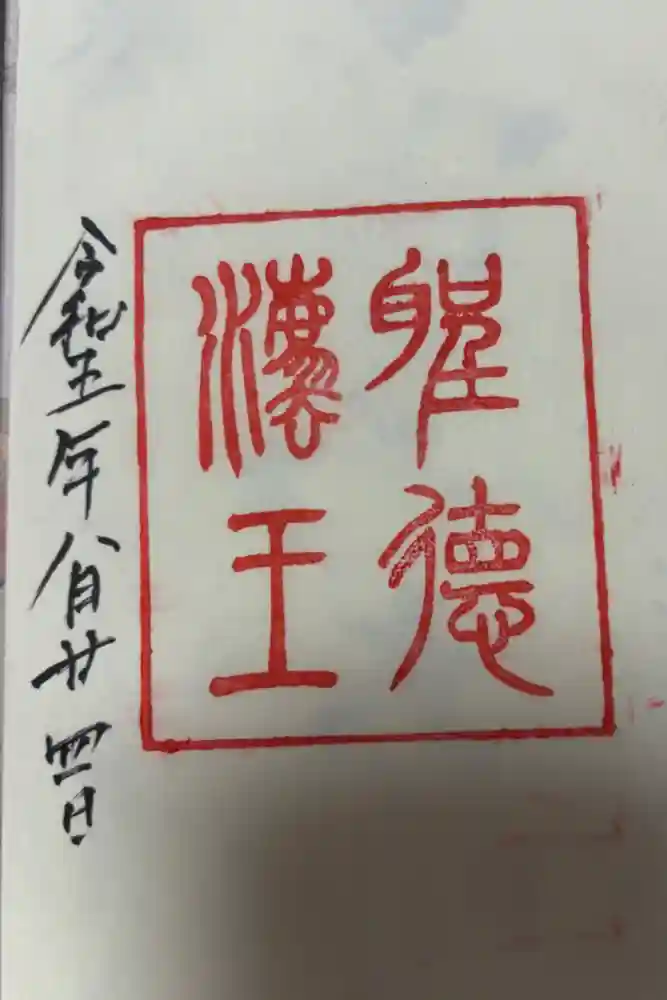 聖德
灋王
令和五年八月廿四日